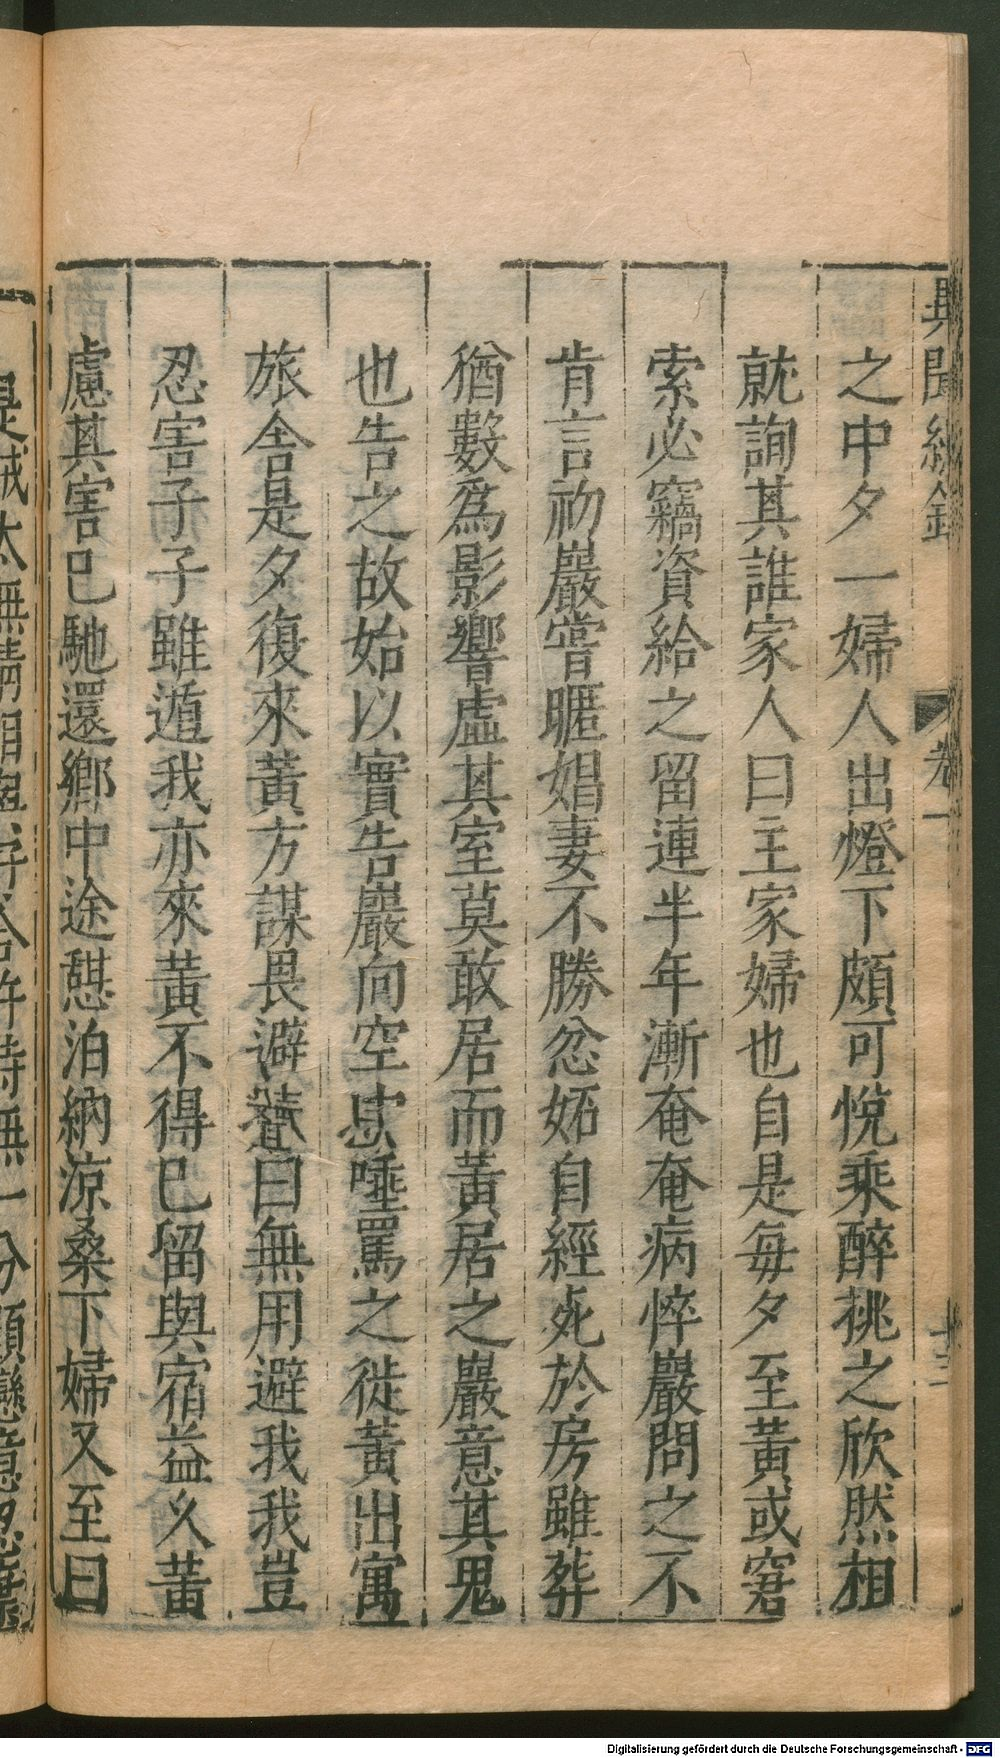 異聞總錄
卷一
十三
之中夕一婦人出燈下頗可悅乘醉挑之欣然相
就詢其誰家人曰主家婦也自是每夕至黃或窘
索必竊資給之留連半年漸奄奄病悴嚴問之不
肯言初嚴嘗暱娼妻不勝忿妬自經死於房雖葬
猶數爲影響虛其室莫敢居而黃居之嚴意其鬼
也告之故始以實告嚴向空中唾罵之徙黃出寓
旅舍是夕復來黃方謀畏避婦曰無用避我我豈
忍害子子雖遁我亦來黃不得已留與宿益久黃
慮其害己馳還鄉中途憇泊納涼桑下婦又至曰
Digitalisierung gefördert durch die Deutsche Forschungsgemeinschaft - DFG